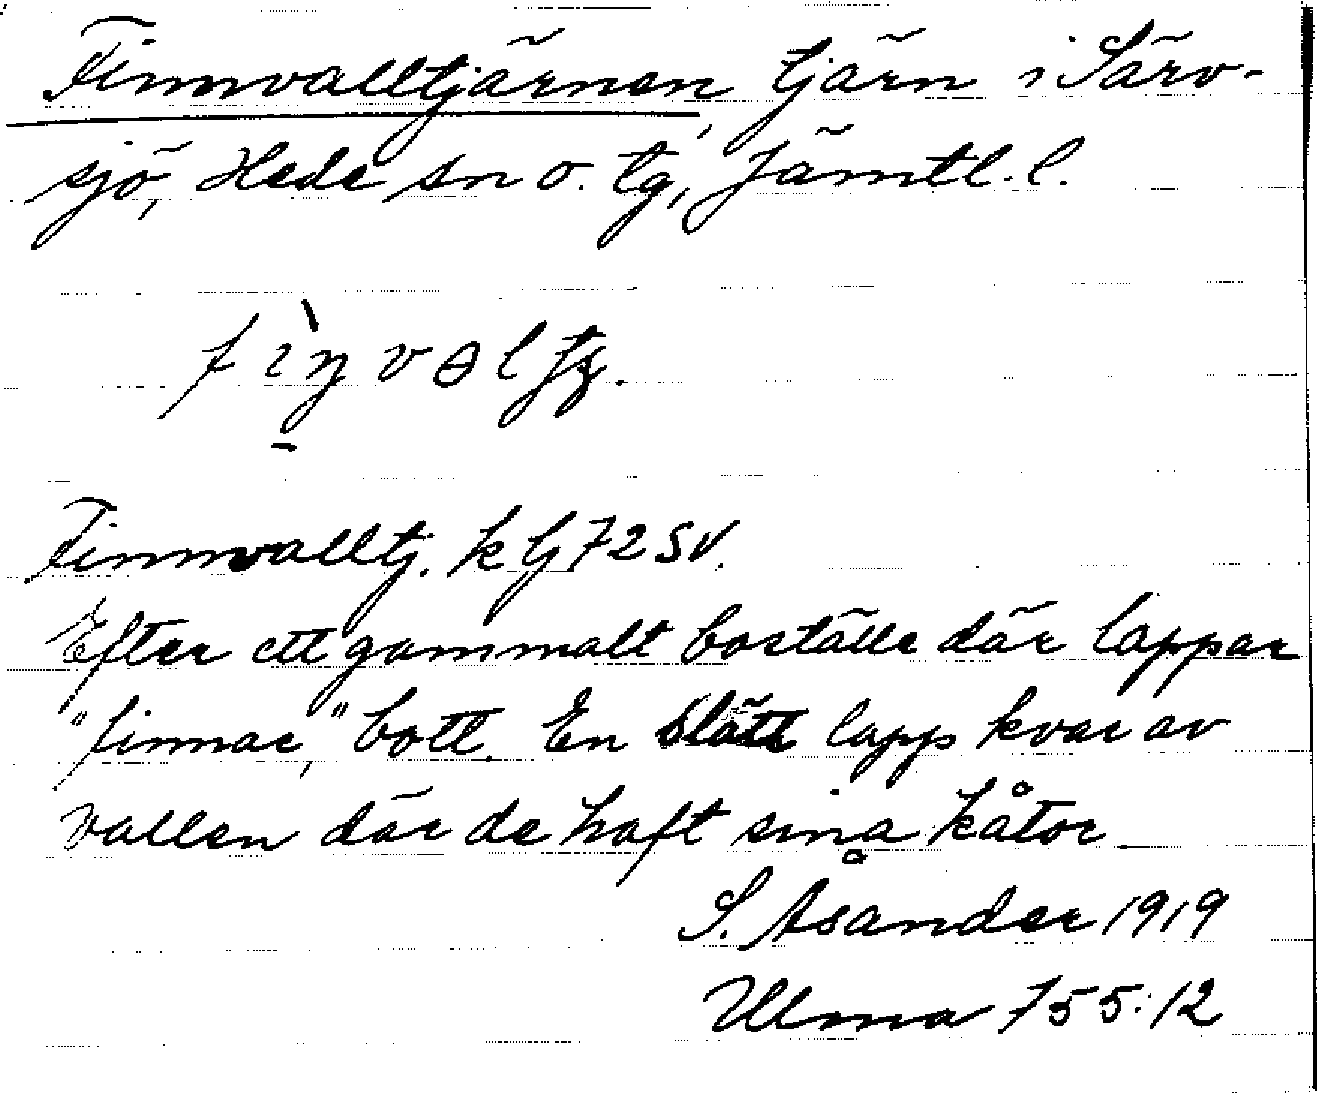 Finnvalltjärnen, tjärn i Särv-
sjö, Hede sn o. tg, Jämtl. l.
Finnvalltj. k bj 72 SV.
Efter ett gammalt boställe där lappar
"finnar," bott. En slätt lapp kvar av
vallen där de haft sina kåtor
S. Åsander 1919
Ulma 755:12